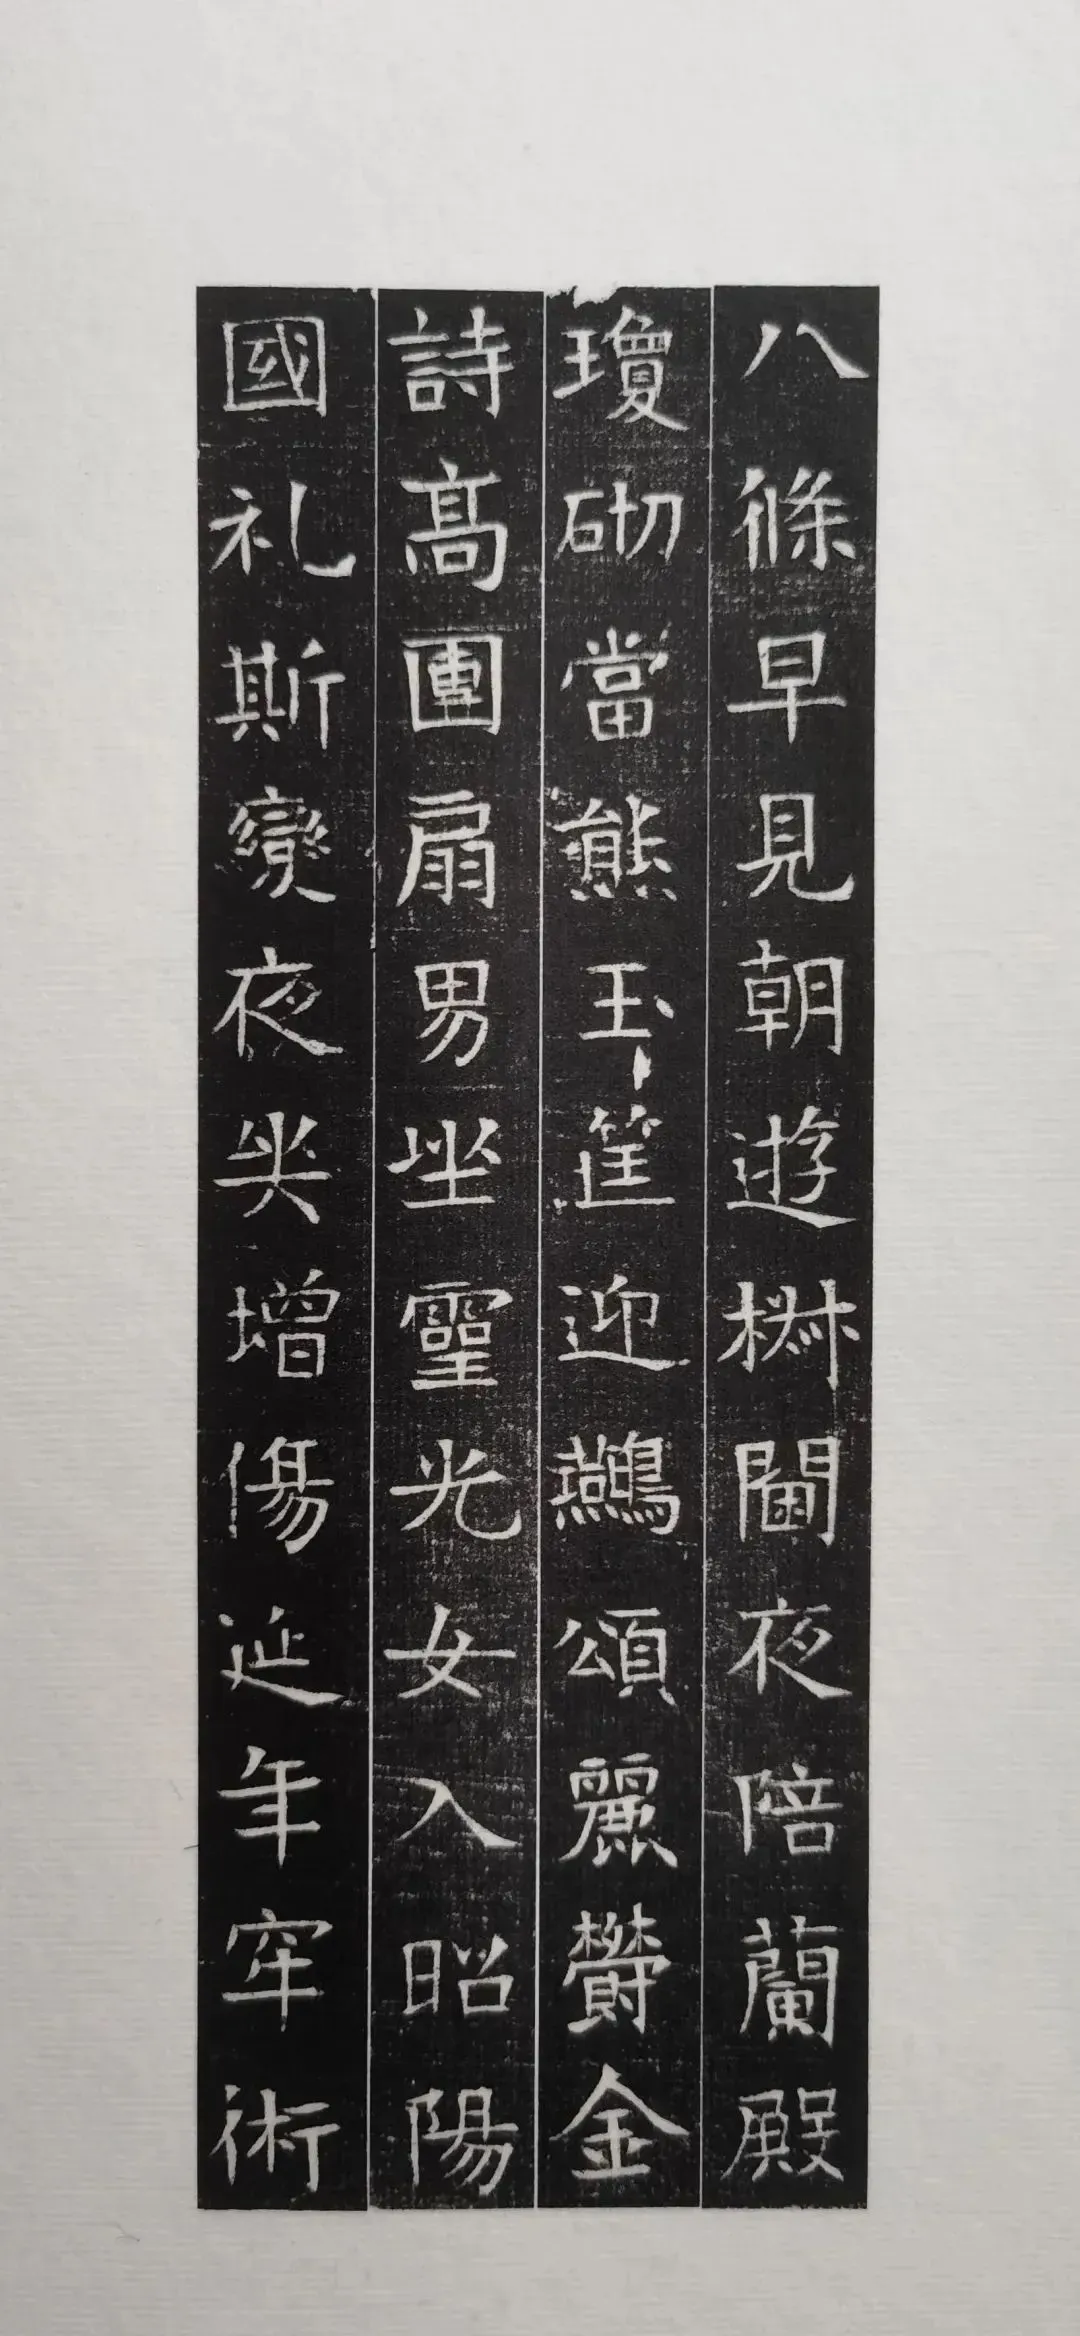 八條早見朝遊椒閫夜陪蘭殿
瓊砌當熊玉筐迎鷰頌麗欝金
詩高團扇男坐靈光女入昭陽
國礼斯變夜哭增傷延年窂術